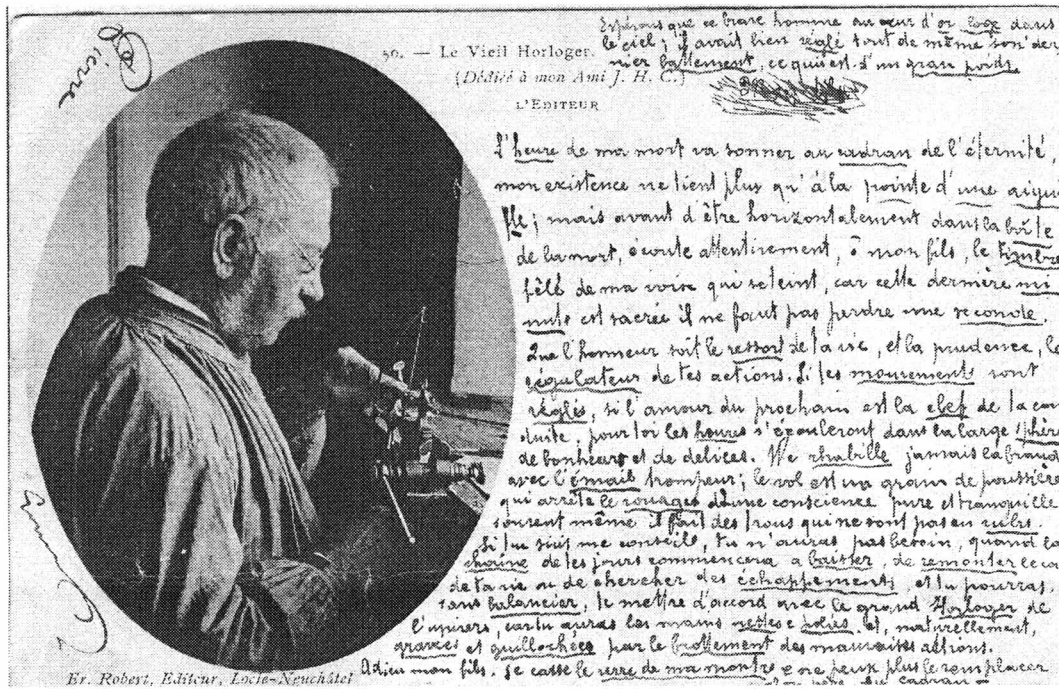 Pierre
50. — Le Vieil Horloger.
(Dédicé à mon Ami J. H. C.)
L'EDITEUR
Espérons que ce brave homme au cœur d'or loge dans
le ciel; il avait bien réglé tout de même son der
nier battement, ce qui est d'un gran poids
L'heure de ma mort va sonner au cadran de l'éternité,
mon existence ne tient plus qu'à la pointe d'une aigui
lle; mais avant d'être horizontalement dans la boîte
de la mort, écoute attentivement, ô mon fils, le timbre
fêlé de ma voix qui s'éteint, car cette dernière mi
nute est sacrée il ne faut pas perdre une seconde.
Que l'honneur soit le ressort de ta vie, et la prudence, le
régulateur de tes actions. Si tes mouvements sont
réglés, si l'amour du prochain est la clef de ta con
duite, pour toi les heures s'écouleront dans la large sphère
de bonheurs et de délices. Ne rhabille jamais la fraude
avec l'émail trompeur; le vol est un grain de poussière
qui arrête le rouages d'une conscience pure et tranquille
souvent même il fait des trous qui ne sont pas en rubis.
Si tu suis me conseils, tu n'auras pas besoin, quand la
chaîne de tes jours commencera a baisser, de remonter le cours
de ta vie ou de chercher des échappements, et tu pourras,
sans balancier, te mettre d'accord avec le grand Horloger de
l'univers, car tu auras les mains nettes e polies et, naturellement,
gravées et guillochées par le frottement des mauvaises actions.
Adieu mon fils. Je casse le verre de ma montre e ne peux plus le remplacer
Er. Robert, Editeur, Locle-Neuchâtel